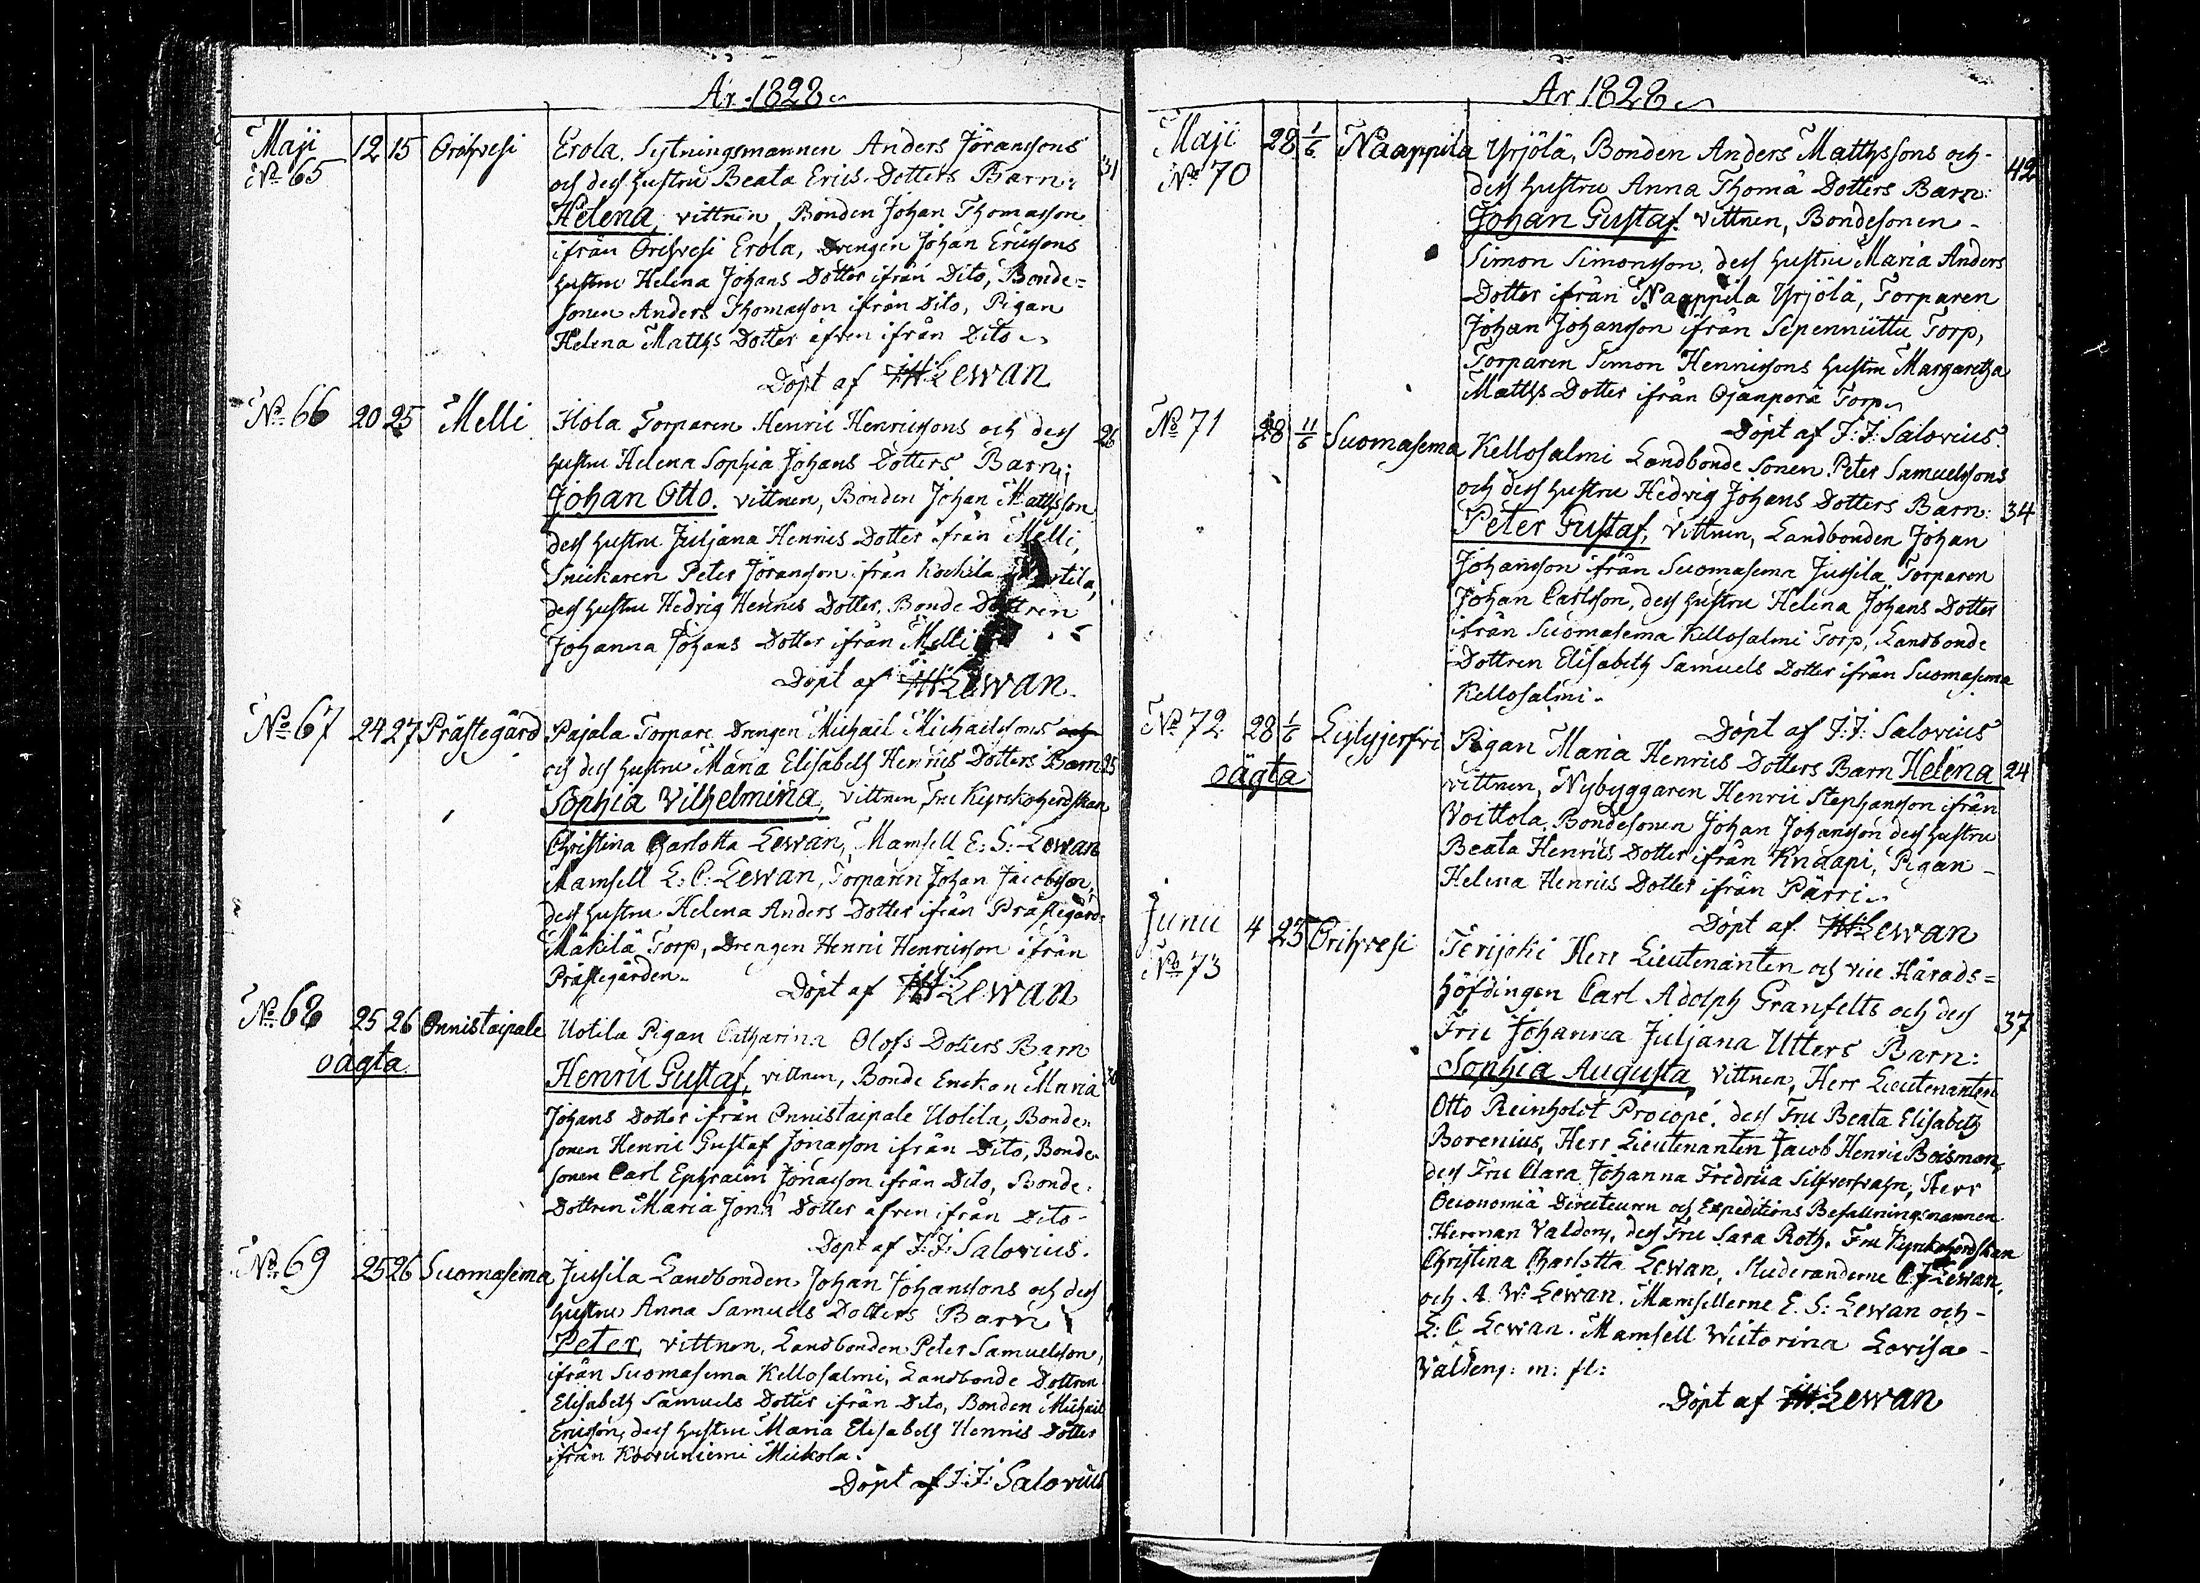 År 1828
Maji 12 15 Orihvesi Erola. Sytningsmannen Anders Jöranssons 31
No 65 och dess hustru Beata Erics Dotters Barn:
Helena, vittnen, Bonden Johan Thomasson
ifrån Orihvesi Erola, Drengen Johan Ericssons
hustru Helena Johans Dotter ifrån Dito, Bonde-
sonen Anders Thomasson ifrån Dito, Pigan
Helena Matths Dotter äfven ifrån Dito
Döpt af Lewan
No 66 20 25 Melli Hola Torparen Henric Henricssons och dess 26
hustru Helena Sophia Johans Dotters Barn;
Johan Otto. vittnen, Bonden Johan Mattsson
dess hustru Juljana Henrics Dotter ifrån Melli,
Snickaren Peter Jöransson ifrån
dess hustru Hedvig Henrics Dotter, Bonde Dottren
Johanna Johans Dotter ifrån Melli
Döpt af Lewan.
No 67 24 27 Prästegård Pajala Torpare Drengen Michail Michailssons och
och dess hustru Maria Elisabeth Henrics Dotters Barn 25
Sophia Vilhelmina, vittnen, Fru Kyrkoherdskan
Christina Charlotta Lewan, Mamsell E: S: Lewan
Mamsell L: C: Lewan, Torparen Johan Jacobsson,
dess hustru Helena Anders Dotter ifrån Prästegårds
Mäkilä Torp, Drengen Henric Henricsson ifrån
Prästegården.
Döpt af Lewan
No 68 25 26 Onnistaipale Uotila Pigan Catharina Olofs Dotters Barn
oägta Henric Gustaf, vittnen, Bonde Enckan Maria
Johans Dotter ifrån Onnistaipale Uotila, Bonde-
sonen Henric Gustaf Jonasson ifrån Dito, Bonde-
sonen Carl Ephraim Jonasson ifrån Dito, Bonde-
Dottren Maria Jonæ Dotter äfven ifrån Dito
Döpt af J: J: Salovius.
No 69 25 26 Suomasema Jussila Landbonden Johan Johanssons och dess
hustru Anna Samuels Dotters Barn
Peter, vittnen, Landbonden Peter Samuelsson,
ifrån Suomasema Kellosalmi, Landbonde Dottren
Elisabeth Samuels Dotter ifrån Dito, Bonden Michail
Ericsson, dess hustru Maria Elisabeth Henrics Dotter
ifrån Mickola.
Döpt af J: J: Salovius
År 1828
Maji 28 1/6 Naappila Yrjölä, Bonden Anders Matthssons och
No 70 dess hustru Anna Thomæ Dotters Barn: 42
Johan Gustaf. vittnen, Bondesonen
Simon Simonsson, dess hustru Maria Anders
Dotter ifrån Naappila Yrjölä, Torparen
Johan Johansson ifrån Sepenniittu Torp,
Torparen Simon Henricssons hustru Margaretha
Matths Dotter ifrån Ojanperä Torp
Döpt af J: J: Salovius
No 71 28 11/6 Suomasema Kellosalmi Landbonde Sonen Peter Samuelssons
och dess hustru Hedvig Johans Dotters Barn: 34
Peter Gustaf, vittnen, Landbonden Johan
Johansson ifrån Suomasema Jussila, Torparen
Johan Carlsson, dess hustru Helena Johans Dotter
ifrån Suomasema Kellosalmi Torp, Landbonde
Dottren Elisabeth Samuels Dotter ifrån Suomasema
Kellosalmi.
Döpt af J: J: Salovius
No 72 28 1/6 Lylyjerfvi Pigan Maria Henrics Dotters Barn Helena 24
oägta vittnen, Nybyggaren Henric Stephansson ifrån
Voittola, Bondesonen Johan Johansson dess hustru
Beata Henrics Dotter ifrån Knaapi, Pigan
Helena Henrics Dotter ifrån Pärri
Döpt af Lewan
Junii 4 25 Orihvesi Terijoki Herr Lieutenanten och vice Härads-
No 73 höfdingen Carl Adolph Granfelts och dess 37
Fru Johanna Juljana Utters Barn:
Sophia Augusta, vittnen, Herr Lieutenanten
Otto Reinholdt Procopé, dess Fru Beata Elisabeth
Borenius, Herr Lieutenanten Jacob Henric Boisman,
dess Fru Clara Johanna Fredrica Silfversvahn, Herr
Oeconomiæ Directeuren och Expeditions Befallningsmannen
Herman Valdeng, dess Fru Sara Roth, Fru Kyrkoherdskan
Christina Charlotta Lewan, Studeranderne C. J Lewan,
och A. W: Lewan. Mamsellerne E. S: Lewan och
L: C Lewan. Mamsell Wictorina Lovisa
Valdeng: m: fl:
Döpt af Lewan